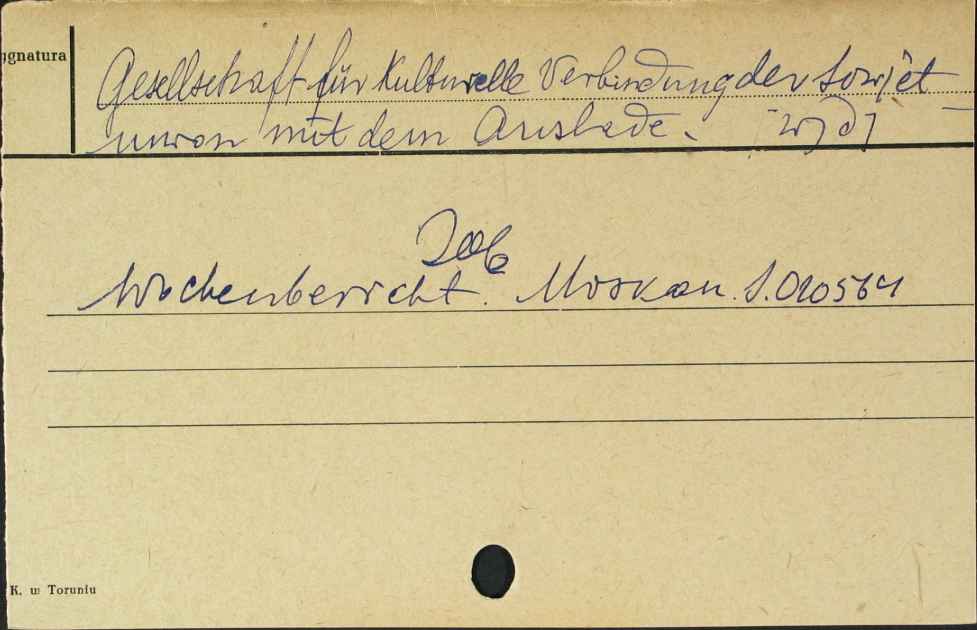 ygnatura
Gesellschaft für Kulturelle Verbindung der Sowjet
union mit dem Auslade.
Wochenbericht. Moskau. S.010564
K. w Toruniu